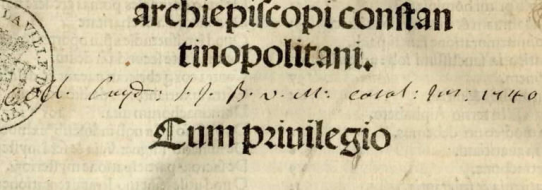 LA VILLE D
archiepiscopi constan
tinopolitani.
Coll. Lugd: S. J. B. V. M. catal: Ins: 1740
Cum priuilegio